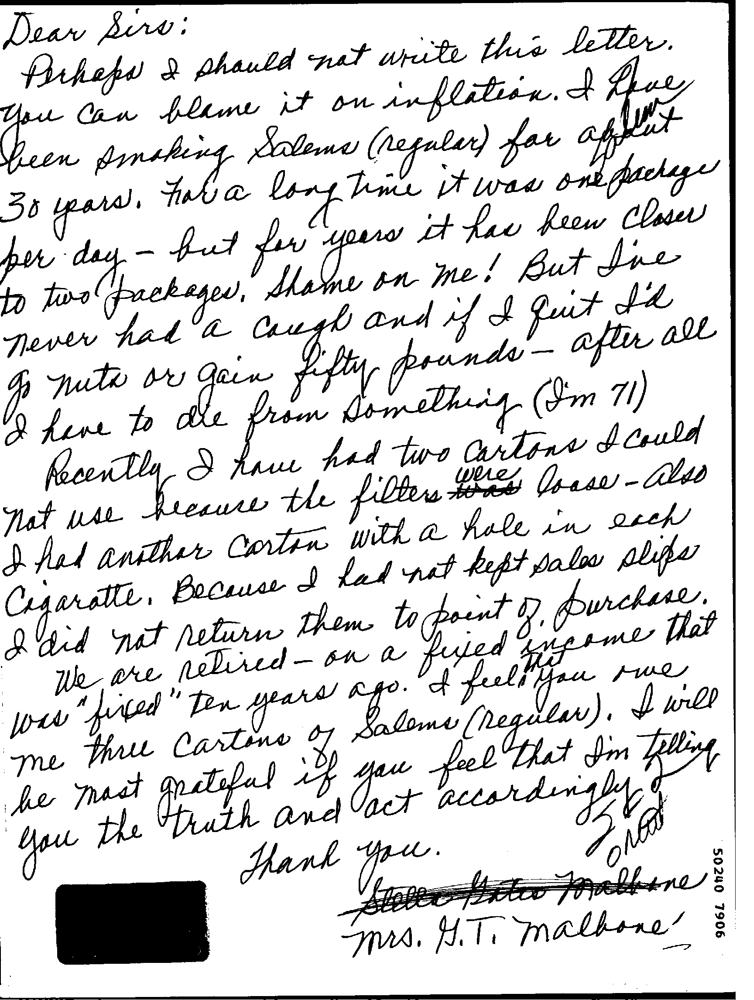 Dear Sirs:
Perhaps I should not write this letter.
You can blame it on inflation. I have
been smoking Salems (regular) for about
30 years. For a long time it was one package
per day - but for years it has been closer
to two packages. Shame on me! But I've
never had a cough and if I quit I'd
go nuts or gain fifty pounds - after all
I have to die from something (I'm 71)
Recently I have had two cartons I could
not use because the filters were loose - also
I had another carton with a hole in each
Cigarette. Because I had not kept sales slips
I did not return them to point of purchase.
We are retired - on a fixed income that
was "fixed" ten years ago. I feel that you owe
me three cartons of Salems (regular). I will
be most grateful if you feel that I'm telling
you the truth and act accordingly
Thank you.
Stella Gates Malbone
Mrs. G.T. Malbone
50240 7906